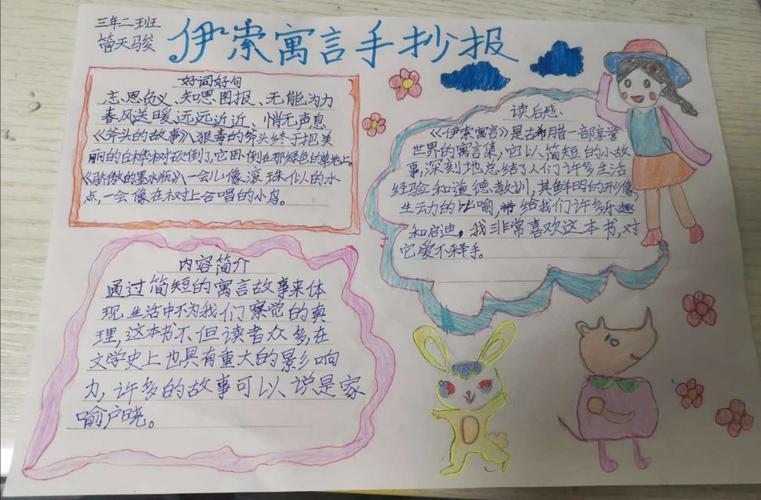 三年二班
简天骏
伊索寓言手抄报
好词好句
忘恩负义、知恩图报、无能为力
春风送暖、远远近近、悄无声息
《斧头的故事》狠毒的斧头终于把美
丽的白桦树砍倒了它卧倒在那绿色的草地上。
《骄傲的墨水瓶》一会儿像滚珠似的水
点,一会像在树上合唱的小鸟。
读后感:
《伊索寓言》是古希腊一部享誉
世界的寓言集,它以简短的小故
事,深刻地总结了人们许多生活
经验和道德教训,其鲜明的形像,
生动的比喻,给我们许多乐趣
和启迪。我非常喜欢这本书,对
它爱不释手。
内容简介
通过简短的寓言故事来体
现,生活中不为我们察觉的真
理,这本书不但读者众多,在
文学史上也具有重大的影响
力,许多的故事可以说是家
喻户晓。